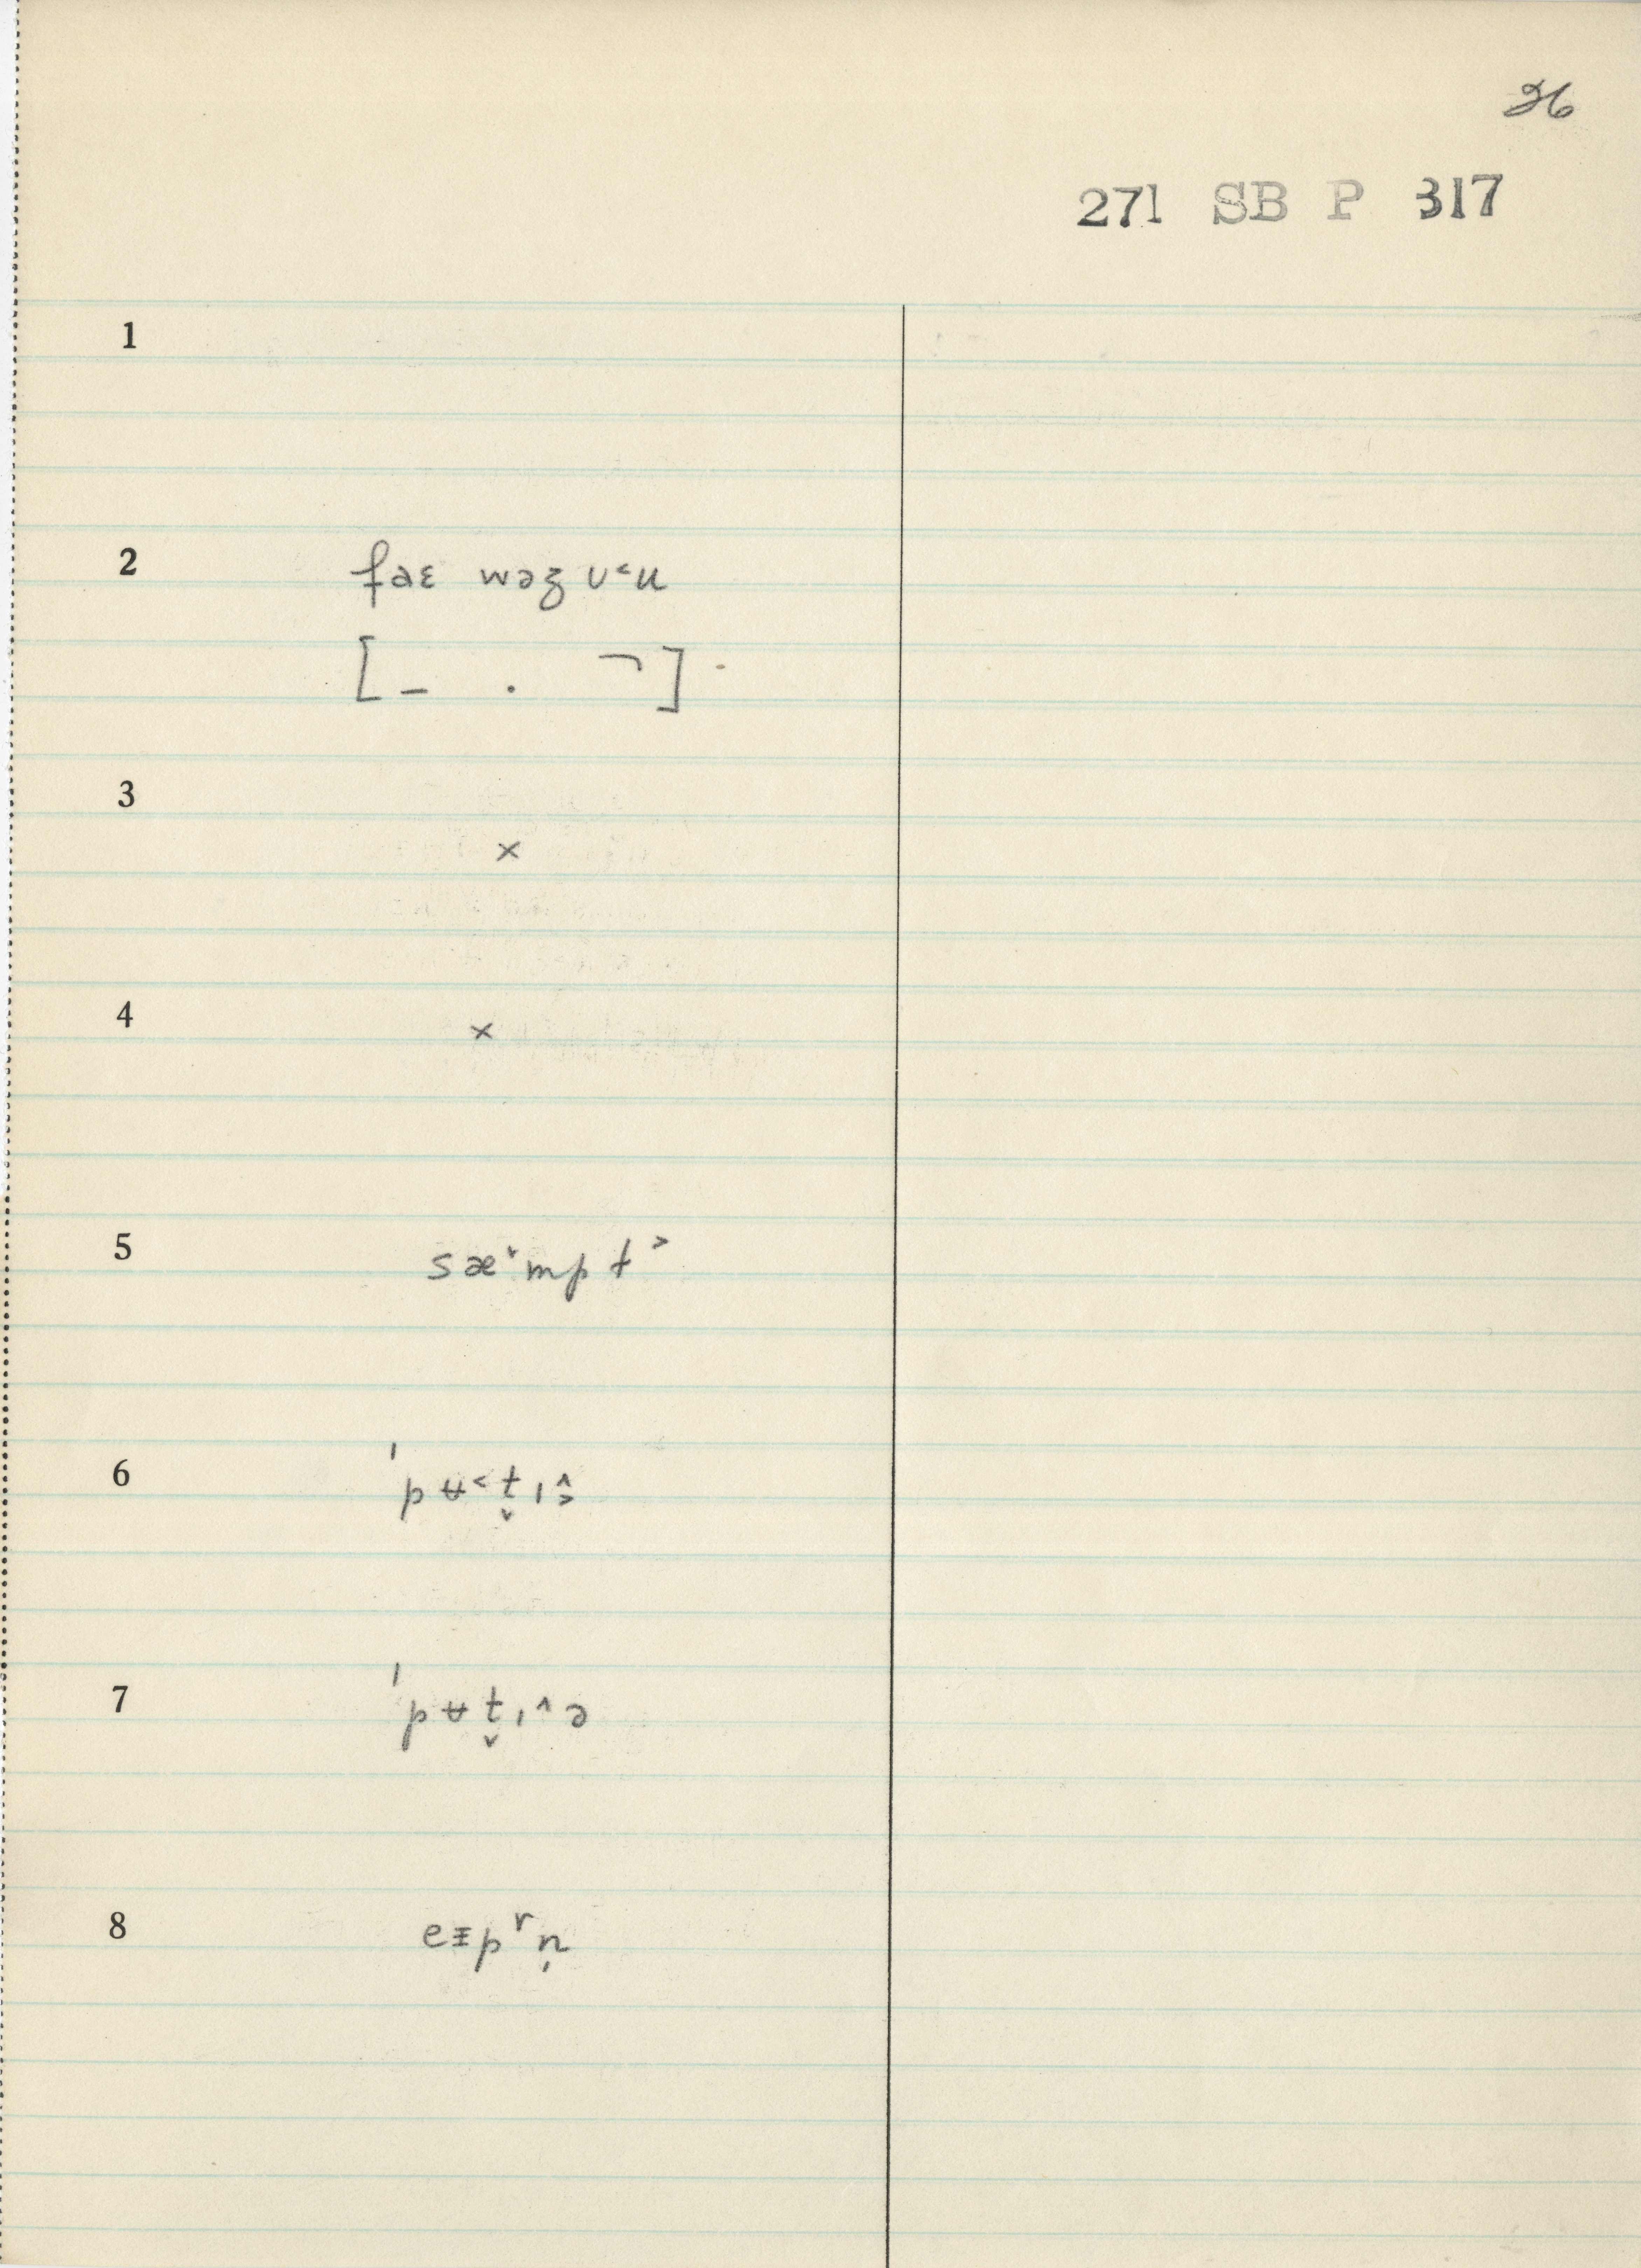 26
271 SB P 317
1
2 faɛ wəʒ ʋ˂u
[ – . ¬ ]
3 ×
4 ×
5 sæ˅mpt˃
6 ˈpʉ˂t̬ɪ˄˃
7 ˈpʉt̬ɪ˄ə
8 eᵻpʳn̩